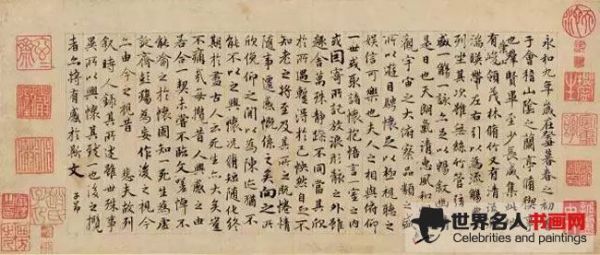 永和九年歲在癸丑暮春之初
于會稽山陰之蘭亭脩禊事
也羣賢畢至少長咸集此地
有崇領茂林脩竹又有清流激
湍暎帶左右引以為流觴曲
列坐其次雖無絲竹管弦
盛一觴一詠亦足以暢敘幽
是日也天朗氣清惠風和
觀宇宙之大俯察品類之盛
所以遊目騁懷足以極視聽之
娛信可樂也夫人之相與俯仰
一世或取諸懷抱悟言一室之內
或因寄所託放浪形骸之外雖
趣舍萬殊靜躁不同當其欣
於所遇暫得於己怏然自足不
知老之將至及其所之既惓情
隨事遷感慨係之矣向之所
欣俛仰之間以為陳迹猶不
能不以之興懷況脩短隨化終
期於盡古人云死生亦大矣豈
不痛哉每攬昔人興感之由
若合一契未嘗不臨文嗟悼不
能喻之於懷固知一死生為虛
誕齊彭殤為妄作後之視今
亦由今之視昔 悲夫故列
敘時人錄其所述雖世殊事
異所以興懷其致一也後之攬
者亦將有感於斯文
子昂
世界名人书画网
Celebrities and paintings